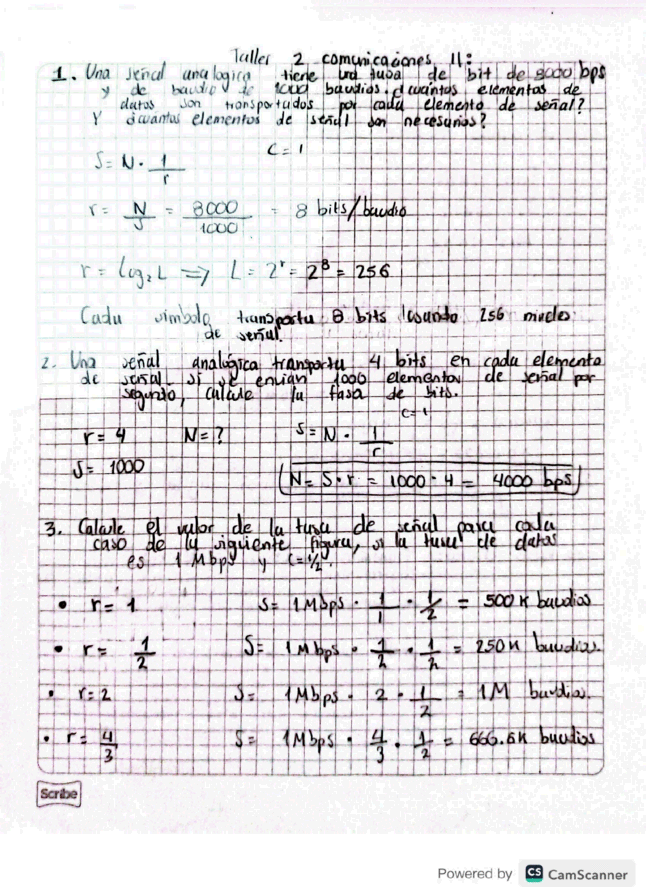 Taller 2 comunicaciones II:
1. Una señal analogica tiene una tasa de bit de 8000 bps
y de baudio de 1000 baudios. ¿cuantos elementos de
datos son transportados por cada elemento de señal?
Y ¿cuántos elementos de señal son necesarios?
S = N · 1/r C = 1
r = N/S = 8000/1000 = 8 bits/baudio
r = Log₂ L => L = 2^r = 2^8 = 256
Cada simbolo transporta 8 bits usando 256 niveles
de señal.
2. Una señal analógica transporta 4 bits en cada elemento
de señal. si se envian 1000 elementos de señal por
segundo, calcule la tasa de bits.
C = 1
r = 4 N = ? S = N · 1/r
S = 1000 N = S · r = 1000 · 4 = 4000 bps
3. Calcule el valor de la tasa de señal para cada
caso de la siguiente figura, si la tasa de datos
es 1 Mbps y C = 1/2.
• r = 1 S = 1 Mbps · 1/1 · 1/2 = 500 K baudios
• r = 1/2 S = 1 Mbps · 1/2 · 1/2 = 250 K baudios.
• r = 2 S = 1 Mbps · 2 · 1/2 = 1M baudios.
• r = 4/3 S = 1 Mbps · 4/3 · 1/2 = 666.6K baudios
Scribe
Powered by CS CamScanner